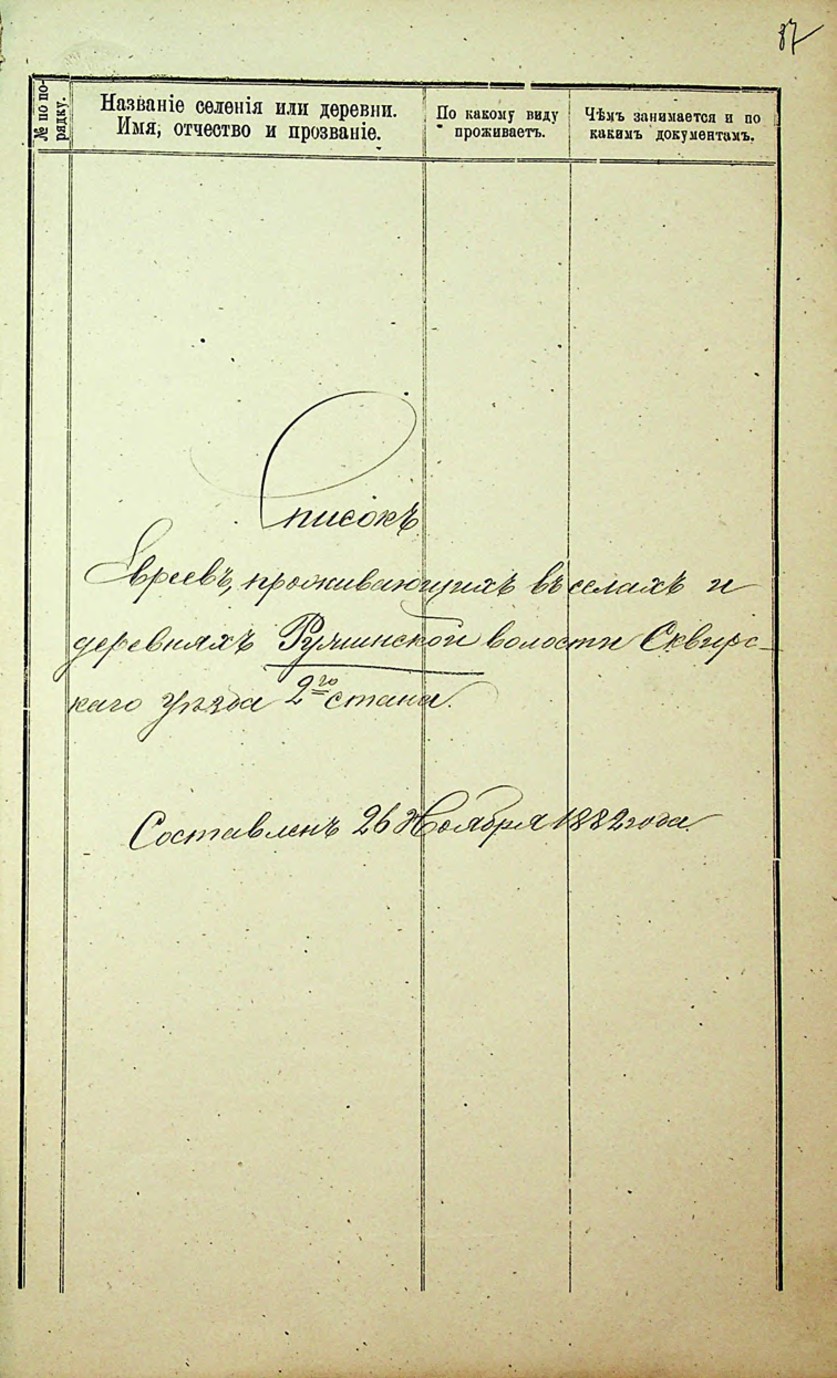 87
№ по по-
рядку.
Названіе селенія или деревни.
Имя, отчество и прозваніе.
По какому виду
проживаетъ.
Чѣмъ занимается и по
какимъ документамъ.
Списокъ
Евреевъ, проживающихъ въ селахъ и
деревняхъ Ружинской волости Сквирс-
каго уѣзда 2го стана.
Составленъ 26 Ноября 1882 года.